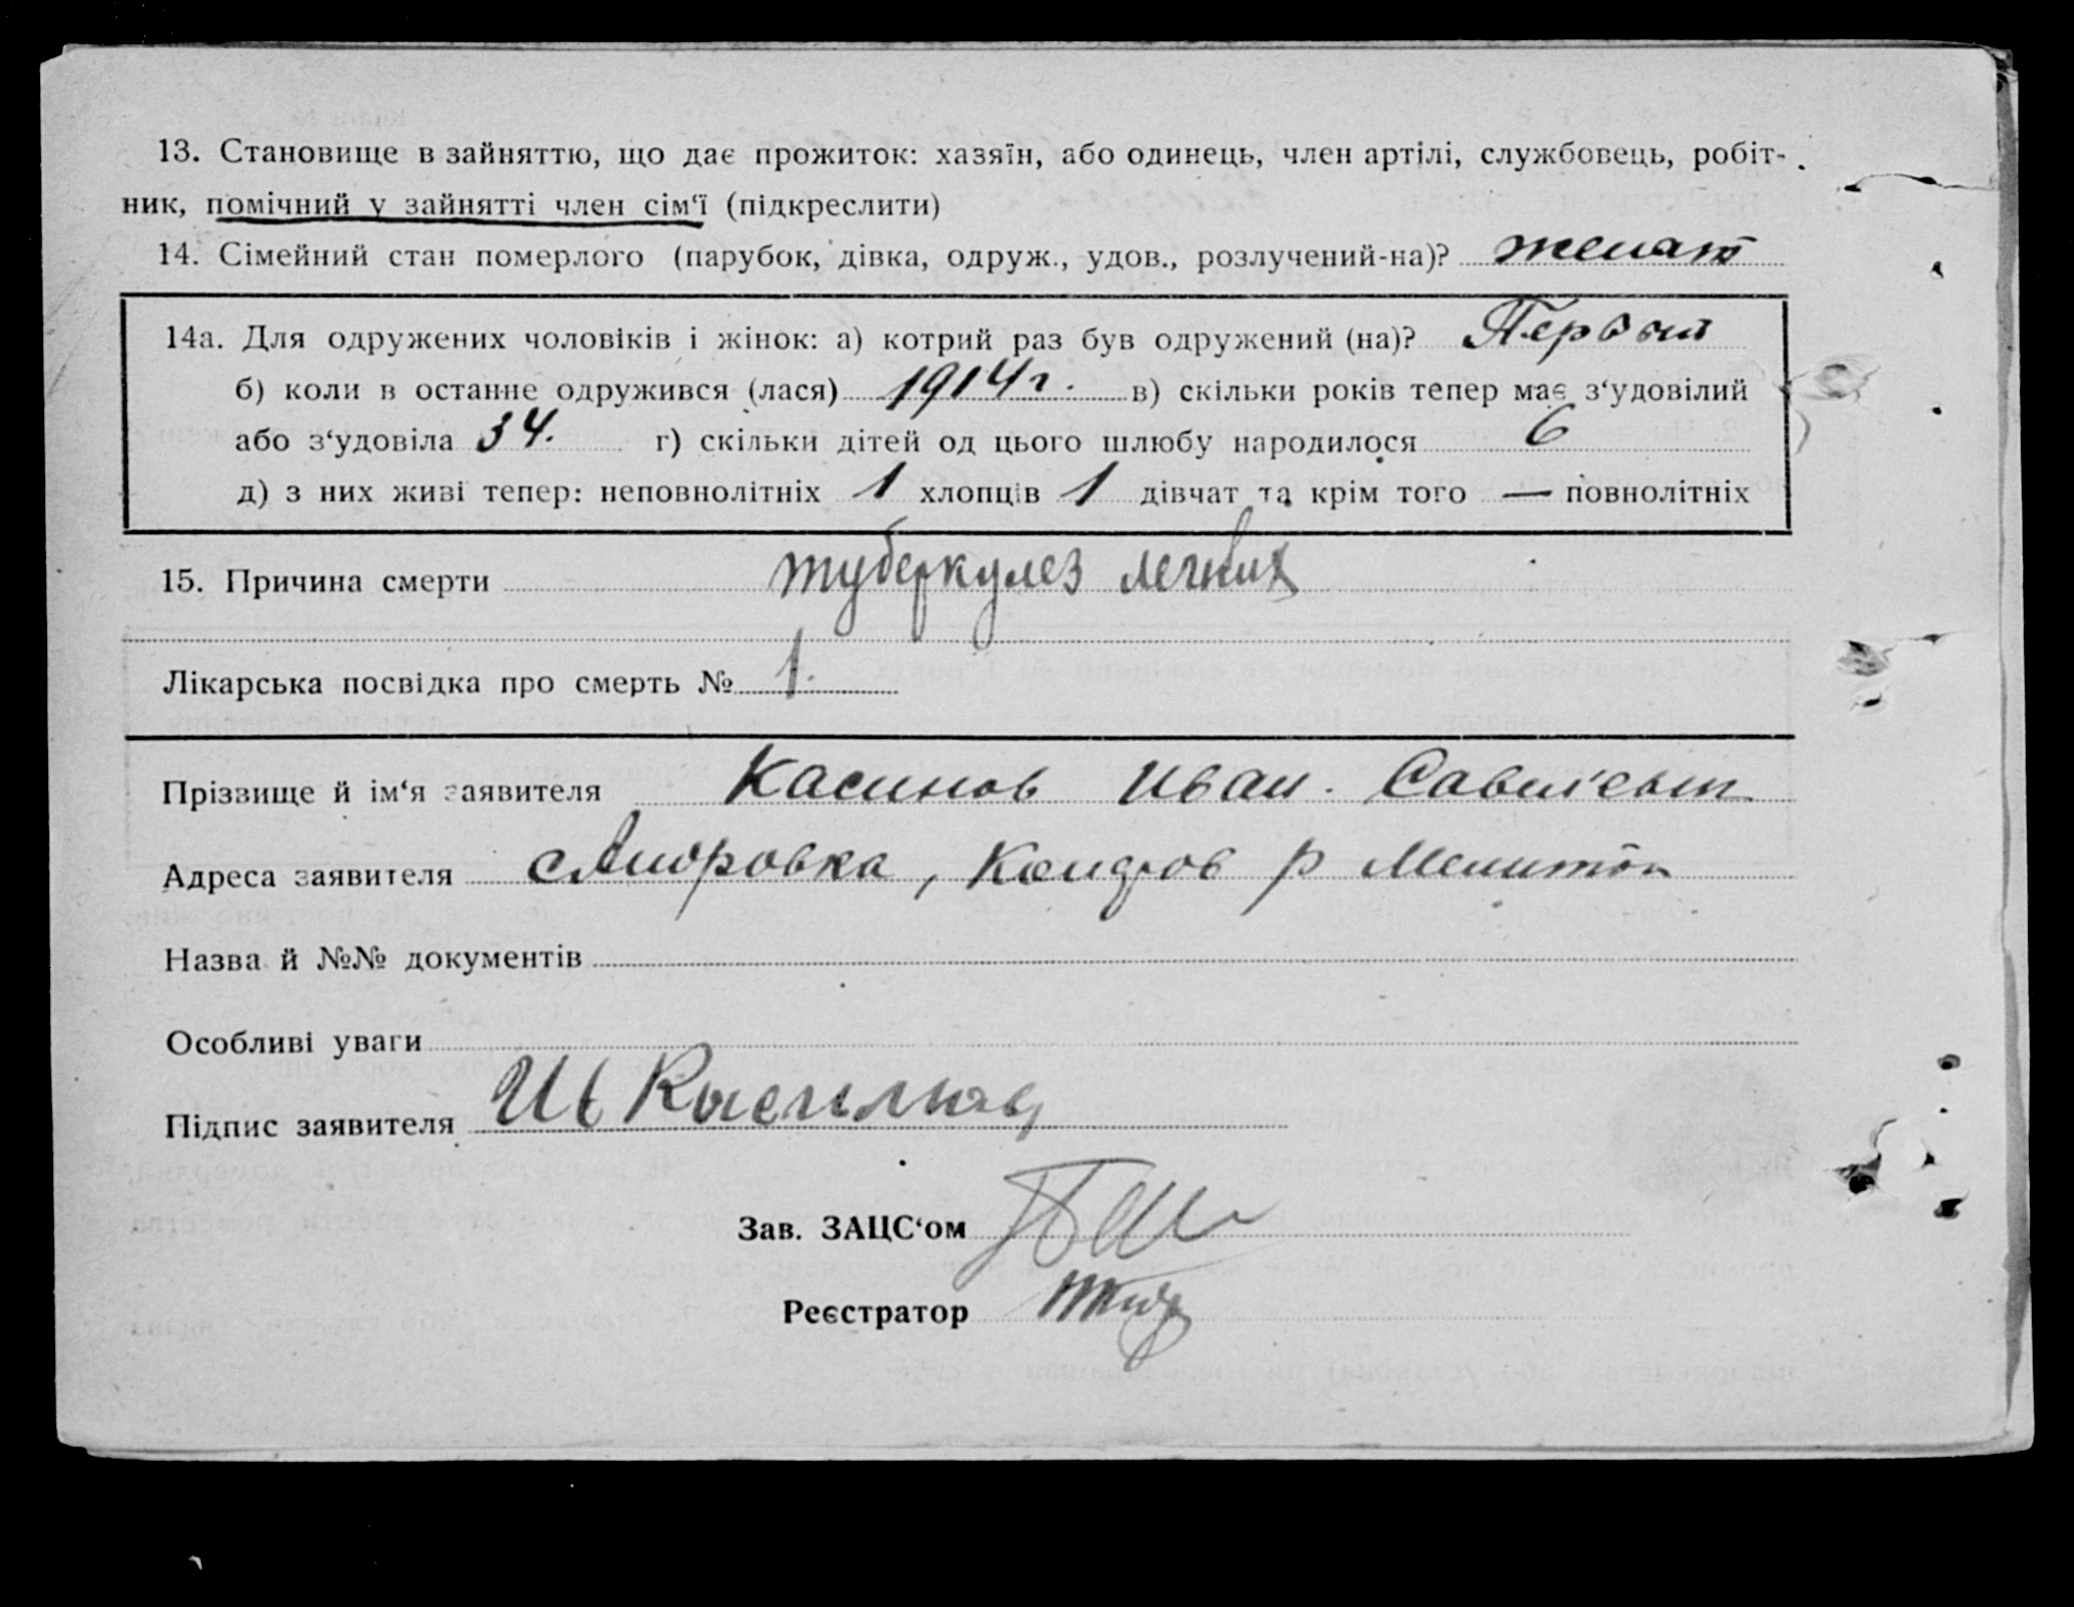 13. Становище в зайняттю, що дає прожиток: хазяїн, або одинець, член артілі, службовець, робіт-
ник, помічний у зайнятті член сім‘ї (підкреслити)
14. Сімейний стан померлого (парубок, дівка, одруж., удов., розлучений-на)? женат
14а. Для одружених чоловіків і жінок: а) котрий раз був одружений (на)? Первый
б) коли в останне одружився (лася) 1914 г. в) скільки років тепер має з‘удовілий
або з‘удовіла 34. г) скільки дітей од цього шлюбу народилося 6
д) з них живі тепер: неповнолітніх 1 хлопців 1 дівчат та крім того — повнолітніх
15. Причина смерти туберкулез легких
Лікарська посвідка про смерть № 1.
Прізвище й ім‘я заявителя Касинов Иван. Савел'евич
Адреса заявителя р
Назва й №№ документів
Особливі уваги
Підпис заявителя
Зав. ЗАЦС‘ом
Реєстратор